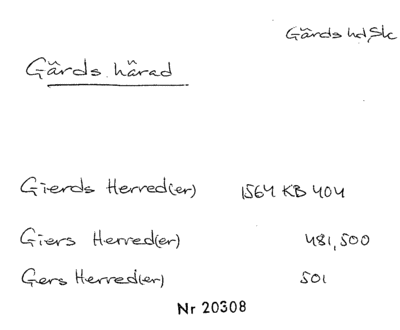 Gärds hd, Sk
Gärds härad
Gierds Herred(er) 1564 KB 404
Giers Herred(er) 481, 500
Gers Herred(er) 501
Nr 20308